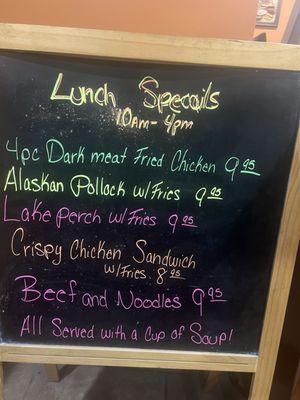 Lunch Specails
10am-4pm
4pc Dark meat Fried Chicken 9.95
Alaskan Pollock w/Fries 9.95
Lake perch w/Fries 9.95
Crispy Chicken Sandwich
w/Fries. 8.95
Beef and Noodles 9.95
All Served with a Cup of Soup!